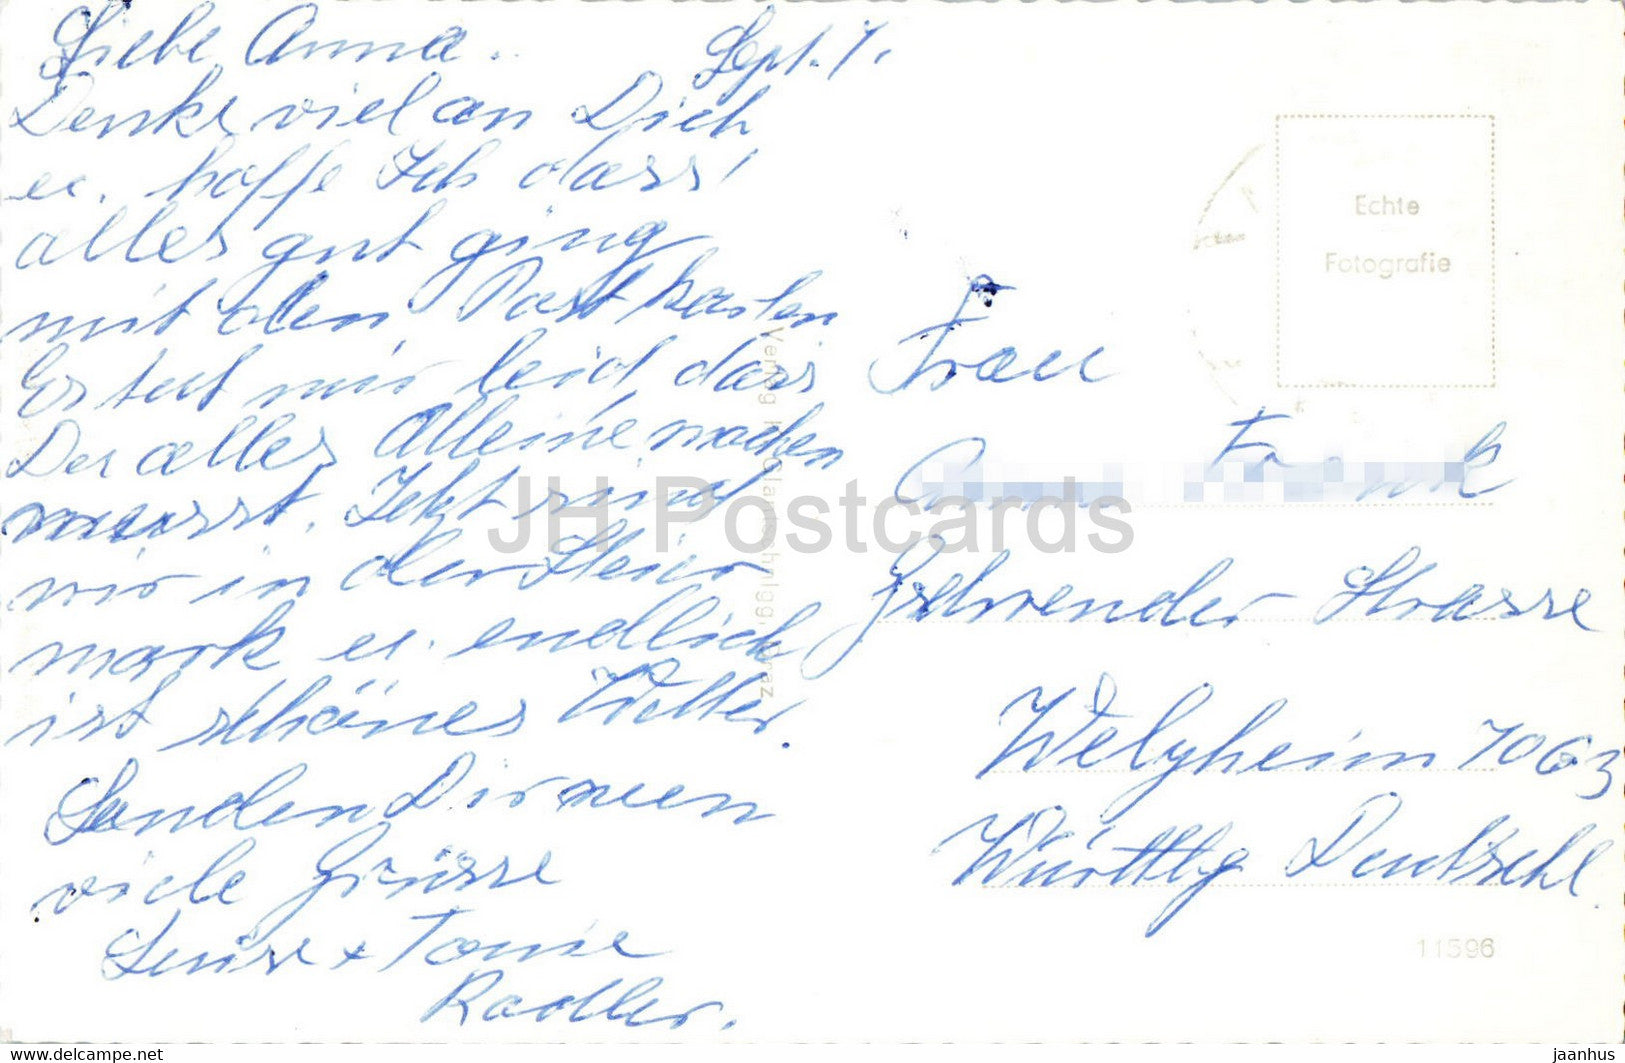 Liebe Anna. Sept. 7.
Denke viel an Dich
u. hoffe Ich dass
alles gut ging
mit den Postkarten
Es tut mir leid, dass
Du alles Alleine machen
musst. Jetzt sind
wir in der Steier
mark u. endlich
ist schönes Wetter.
Senden Dir nun
viele Grüsse
Luise + Tonie
Radler.
Echte
Fotografie
Frau
Anna
Gschwender Strasse
Welzheim 7063
Württbg Deutschl.
11596
JH Postcards
Verlag
Graz
HipPostcard.com
jaanhus